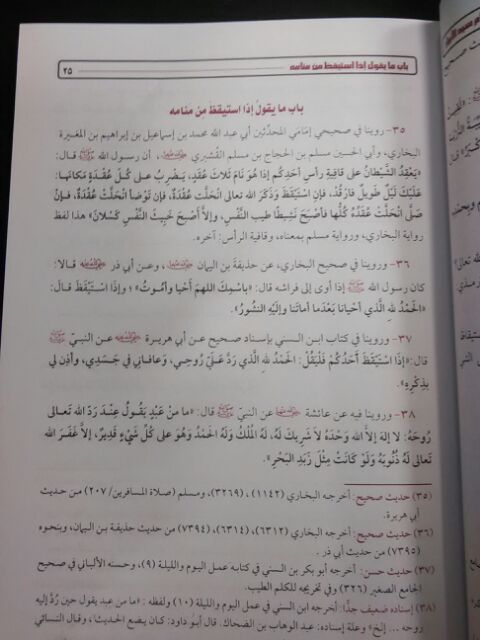 باب ما يقول إذا استيقظ من منامه
٢٥
باب ما يقولُ إذا استيقظَ مِنْ مَنامه
٣٥- روينا في صحيحي إمَامَي المحدِّثين أبي عبد الله محمد بن إسماعيل بن إبراهيم بن المغيرة
البخاري، وأبي الحسين مسلم بن الحجاج بن مسلم القُشيري، أن رسول الله ﷺ قال:
«يَعْقِدُ الشَّيْطَانُ على قافِيَةِ رأسِ أحدِكُم إذَا هُوَ نَامَ ثَلاثَ عُقَدٍ، يَضْرِبُ على كُلِّ عُقْدَةٍ مَكانَها:
عَلَيْكَ لَيْلٌ طَوِيلٌ فارْقُدْ، فإنِ اسْتَيْقَظَ وَذَكَرَ الله تعالى انْحَلَّتْ عُقْدَةٌ، فإن تَوْضأ انْحَلَّتْ عُقْدَةٌ، فإنْ
صَلَّى انْحَلَّتْ عُقَدُهُ كُلُّها فأصْبَحَ نَشِيطًا طيب النَّفْسِ، وإلاَّ أصْبَحَ خَبِيثَ النَّفْسِ كَسْلانَ» هذا لفظ
رواية البخاري، ورواية مسلم بمعناه، وقافية الرأس: آخره.
٣٦- وروينا في صحيح البخاري، عن حذيفة بن اليمان، وعن أبي ذر قالا:
كان رسول الله ﷺ إذا أوى إلى فراشه قال: «باسْمِكَ اللهمَّ أحْيا وأموتُ»؛ وإذَا اسْتَيْقَظَ قالَ:
«الحَمْدُ لله الَّذي أحْيانا بَعْدَما أماتَنا وإلَيْهِ النشُورُ».
٣٧- وروينا في كتاب ابن السني بإسناد صحيح عن أبي هريرة عن النبيّ ﷺ
قال: «إذَا اسْتَيْقَظَ أَحَدُكُمْ فَلْيَقُلْ: الحَمْدُ لله الَّذي رَدَّ عَلَيَّ رُوحِي، وَعَافاني في جَسَدِي، وأذِن لي
بذِكْرِهِ».
٣٨- وروينا فيه عن عائشة عن النبيّ ﷺ قال: «ما مِنْ عَبْدٍ يَقُولُ عِنْدَ رَدّ الله تَعالى
رُوحَهُ: لا إلهَ إلاَّ الله وَحْدَهُ لا شَرِيكَ لَهُ، لَهُ المُلْكُ وَلَهُ الحَمْدُ وَهُوَ على كُلِّ شَيْءٍ قَدِيرٌ، إلاَّ غَفَرَ الله
تَعالى لَهُ ذُنُوبَهُ وَلَوْ كَانَتْ مِثْلَ زَبَدِ البَحْرِ».
(٣٥) حديث صحيح: أخرجه البخاري (١١٤٢)، (٣٢٦٩)، ومسلم (صلاة المسافرين/ ٢٠٧) من حديث
أبي هريرة.
(٣٦) حديث صحيح: أخرجه البخاري (٦٣١٢)، (٦٣١٤)، (٧٣٩٤) من حديث حذيفة بن اليمان، وبنحوه
(٧٣٩٥) من حديث أبي ذر.
(٣٧) حديث حسن: أخرجه أبو بكر بن السني في كتابه عمل اليوم والليلة (٩)، وحسنه الألباني في صحيح
الجامع الصغير (٣٢٦) وفي تخريجه للكلم الطيب.
(٣٨) إسناده ضعيف جدًّا: أخرجه ابن السني في عمل اليوم والليلة (١٠) ولفظه: «ما من عبد يقول حين ردّ إليه
روحه ... إلخ» وعلة إسناده: عبد الوهاب بن الضحاك. قال أبو داود: كان يضع الحديث، وقال النسائي